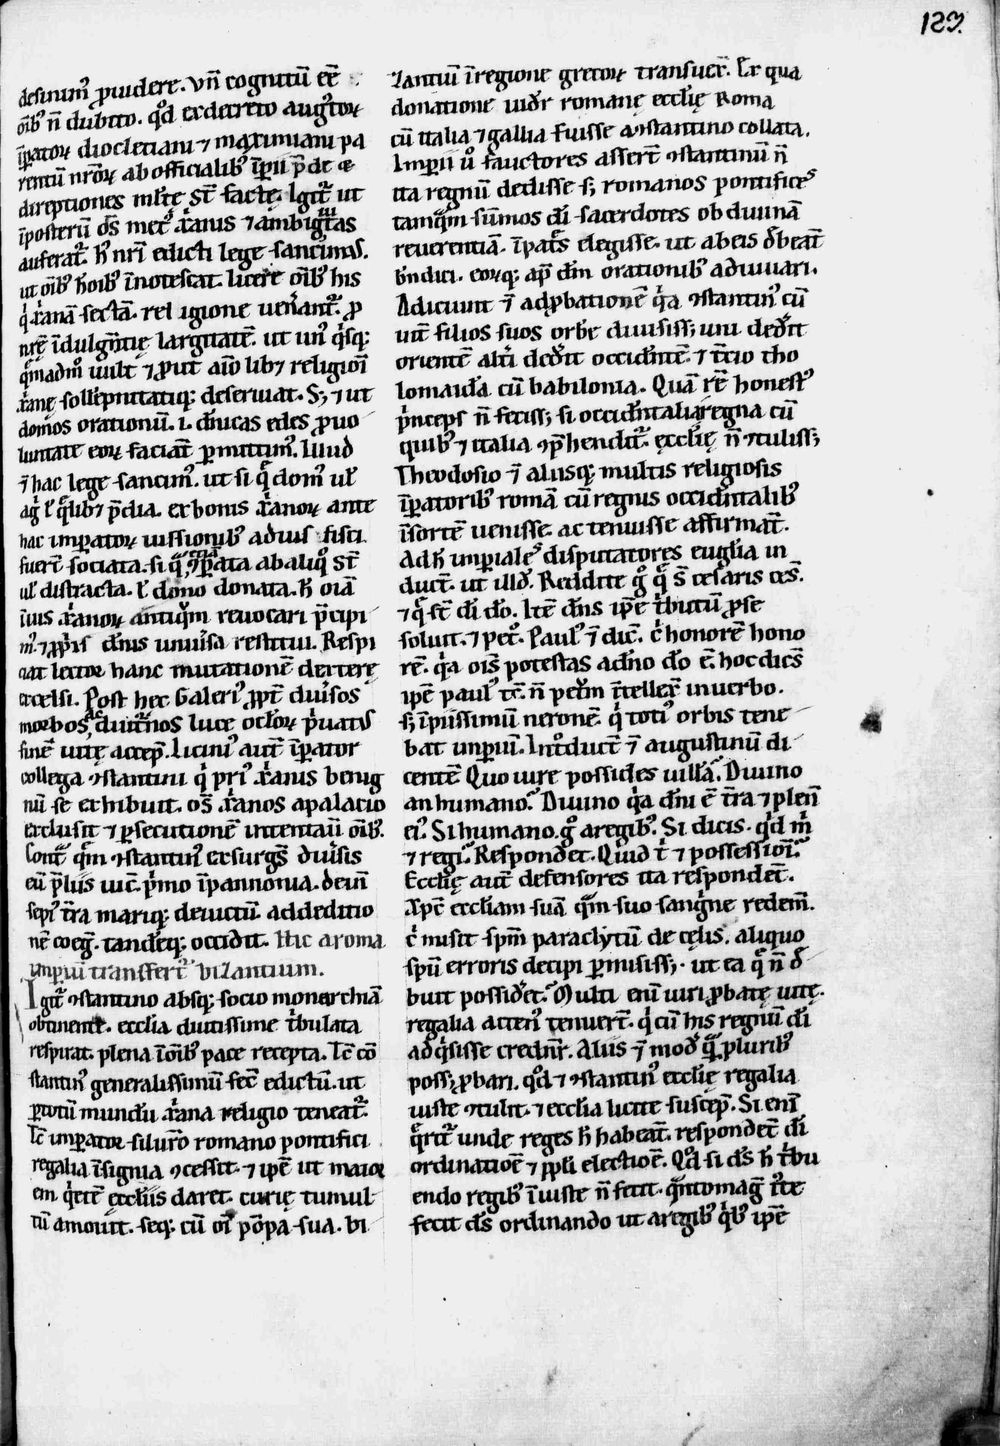 123.
desinim⁹ ꝓuidere. Vn̄ cognitū eē
oīb⁹ n̄ dubito. qd̄ ex decreto augꝰtoꝝ
īꝑatoꝝ diocletiani ⁊ maximiani pa
rentū nr̄oꝝ ab officialib⁹ īꝑii p̄de
direptiones ml̄te st̄ facte. Igit᷑ ut
īposterū oīs met⁹ xͥanis ⁊ ambigͥtas
auferat᷑. hͦ nr̄i edicti lege sancim⁹.
ut oīb⁹ hoīb⁹ īnotescat. licere oīb⁹ his
qͥ xͥanā sectā. religione uen̄ant᷑. ꝓ
nrē īdulgn̄tię largitatē. ut un⁹ qͥsq;
qͣmadm̄ uult ⁊ ꝓut aīo lib₃ religiōi
xͥanę sollēpnitatiq; deseruiat. S; ⁊ ut
domos orationū. i. dn̄icas edes ꝓ uo
luntate eoꝝ faciāt ꝑmittim⁹. Illud
⁊ hac lege sancim⁹. ut si qͣ dom⁹ ul̓
agͥ l̓ qͣlib₃ p̄dia. ex bonis xͥanoꝝ ante
hac imperatoꝝ iussionib⁹ ad ius fisci
fuert̄ sociata. si qͣ etiā ꝯꝑata ab aliqͦ st̄
ul̓ distracta. l̓ dono donata. hͨ oīā
ī ius xͥanoꝝ antiqͣm reuocari p̄cipi
m⁹. ⁊ ꝓpͥis dn̄is uniūsa restitui. Respi
ciat lector hanc mutationē dexterę
excelsi. Post hec Galeri⁹ ꝓpt̄ duīsos
morbos, ac diutͥnos luce oclōꝝ pͥuatꝰ
finē uitę accep̄. Licini⁹ aut̄ īꝑator
collega ꝯstantini qͥ pri⁹ xͥanis benig
nū se exhibuit. oīs xͥanos a palacio
exclusit ⁊ ꝑsecutionē intentauit oīb⁹.
Contͣ qͣm ꝯstantin⁹ exsurgs̄ diuīsis
eū p̄liis uic̄. pͥmo ī pannonia. dein̄
sepi⁹ t̄ra mariq; deuictū. ad deditio
nē coeḡ. tandēq; occidit. Hic a roma
imperiū transfert᷑ bizantium.
Igit᷑ ꝯstantino absq; socio monarchiā
obtinente. ecclia diutissime tͥbulata
respirat. plena īoīb⁹ pace recepta. Ic̄ cō
stantin⁹ generalissimū fec̄ edictū. ut
ꝑ totū mundū xͥana religio teneat᷑.
Ic̄ imperator siluro romano pontifici
regalia īsignia ꝯcessit. ⁊ ipē ut maior
em qͥetē ęccliis daret. curię tumul
tū amouit. seq; cū oī pōpa sua. bi
zantiū ī regione grecoꝝ transuex̄. Ex qua
donatione uidr̄ romanę ecclię Roma
cū italia ⁊ gallia fuisse a ꝯstantino collata.
Imperii u⁰ fauctores assert̄ ꝯstantinū n̄
ita regnū dedisse s; romanos pontifices
tamqͣm sūmos dī sacerdotes ob diuinā
reuerentiā. īpat̄s elegisse. ut ab eis d̄beāt
bn̄dici. eoꝝq; ap̄ dm̄ orationib⁹ adiuuari.
Adiciunt ⁊ ad ꝓbationē qͥa ꝯstantin⁹ cū
int̄ filios suos orbē diuisiss; uni dedit̄
orientē alt̄i dedit̄ occidn̄tē. ⁊ t̄cio tho
lomaida cū babilonia. Quā rē honest⁹
pͥnceps n̄ feciss; si occidn̄talia regna cū
quib⁹ ⁊ italia ꝯp̄hendit᷑. ęcclię n̄ ꝯtuliss;
Theodosio ⁊ aliisq; multis religiosis
īꝑatorib⁹ romā cū regnis occidn̄talib⁹
ī sortē uenisse. ac tenuisse affirmāt.
Ad hͨ imperiales disputatores euglīa in
ducūt. ut illd̄. Reddite gͦ qͣ s̄ cesaris ces̄.
⁊ qͣ st̄ dī dō. Itē dn̄s ipē tͥbutū ꝓ se
soluit. ⁊ pet⁹. Paul⁹ ⁊ dic̄. cͥ honorē hono
rē. qͥa oīs potestas adn̄o dō ē. hoc dics̄
ipē paul⁹ tc̄. n̄ petͣm ītellex̄ in uerbo.
s; īpiissimū neronē. qͥ toti⁹ orbis tene
bat imperiū. Int̄duct̄ ⁊ augustinū di
centē Quo iure possides uillā? Diuino
an humano? Diuino qͥa dn̄i ē t̄ra ⁊ plen̄
ei⁹. Si humano. gͦ a regib⁹. Si dicis. quid mͥ
⁊ regi? Respondet. Quid tͥ ⁊ possessiōi?
Ecclię aut̄ defensores ita respondēt.
Xp̄c eccliam suā qͣm suo sangͥne redem̄.
cͥ misit spm̄ paraclytū de cęlis. aliquo
spū erroris decipi ꝑmisiss;. ut ea qͣ n̄ d̄
buit possidēt? Multi enī uiri ꝓbatę uitę.
regalia acten⁹ tenuert̄. qͥ cū his regnū dī
adqͥsisse credn̄r. Aliis ⁊ mod̄ qͣ pluribꝰ
poss; ꝓbari. qd̄ ⁊ ꝯstantin⁹ ecclię regalia
iuste ꝯtulit. ⁊ ecclia licite suscep̄. Si enī
qͣrit᷑ unde reges hͨ habeāt. respondēt dī
ordinatiōe ⁊ ppl̄i electiōe. Qd̄ si ds̄ hͨ tͥbu
endo regib⁹ īiuste n̄ fecit. qͣntomag̓ iͥste
fecit ds̄ ordinando ut a regib⁹ qͥb⁹ ipē